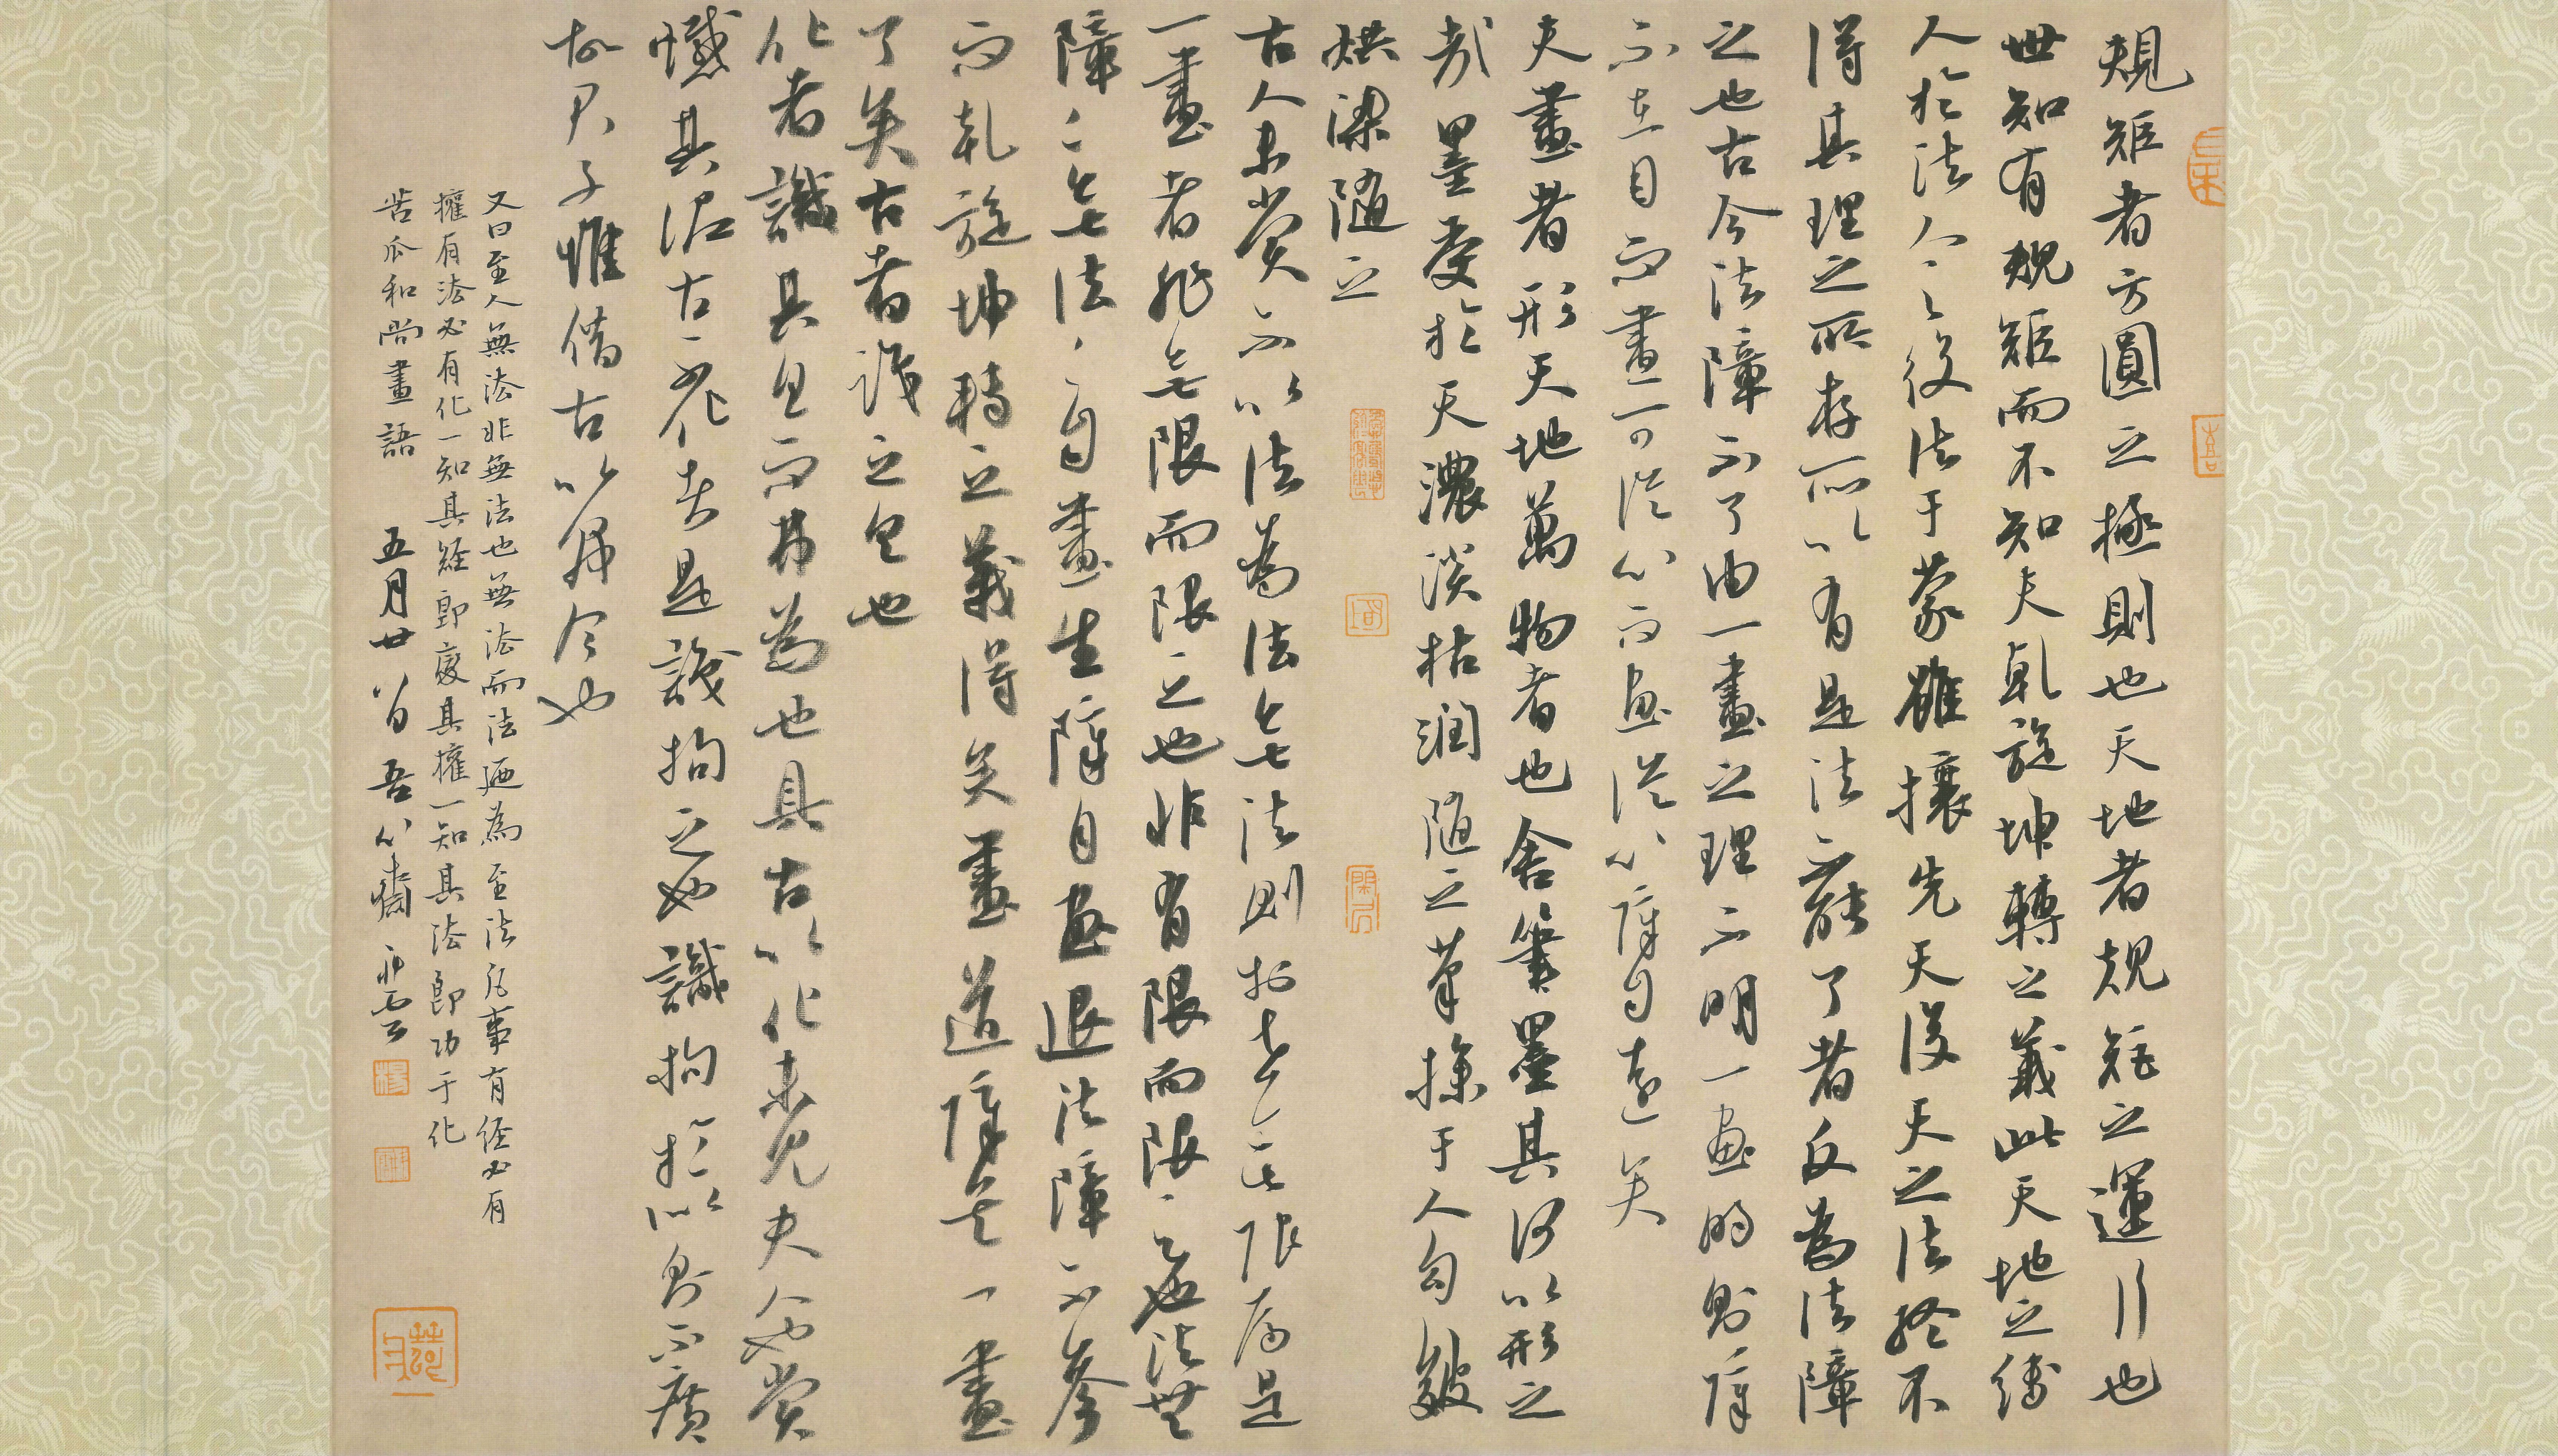 規矩者方圓之極則也天地者規矩之運行也
世知有規矩而不知夫乾旋坤轉之義此天地之縛
人於法人之役法于蒙雖攘先天後天之法終不
得其理之所存所以有是法不能了者反為法障
之也古今法障不了由一畫之理不明一畫明則障
不在目而畫可從心而畫從心障自遠矣
夫畫者形天地萬物者也舍筆墨其何以形之
哉墨受於天濃淡枯潤隨之筆操于人勾皴
烘染隨之
古人未嘗不以法為法無法則於世無限焉是
一畫者非無限而限之也非有限而限之也法無
障障無法法自畫生障自畫退法障不參
而乾旋坤轉之義得矣畫道障矣一畫
了矣古者識之具也
化者識其具而弗為也具古以化未見夫人也嘗
憾其泥古不化者是識拘之也識拘於似則不廣
故君子惟借古以開今也
又曰至人無法非無法也無法而法廼為至法凡事有經必有
權有法必有化一知其經即變其權一知其法即功于化
苦瓜和尚畫語 五月廿八日 吾心齋